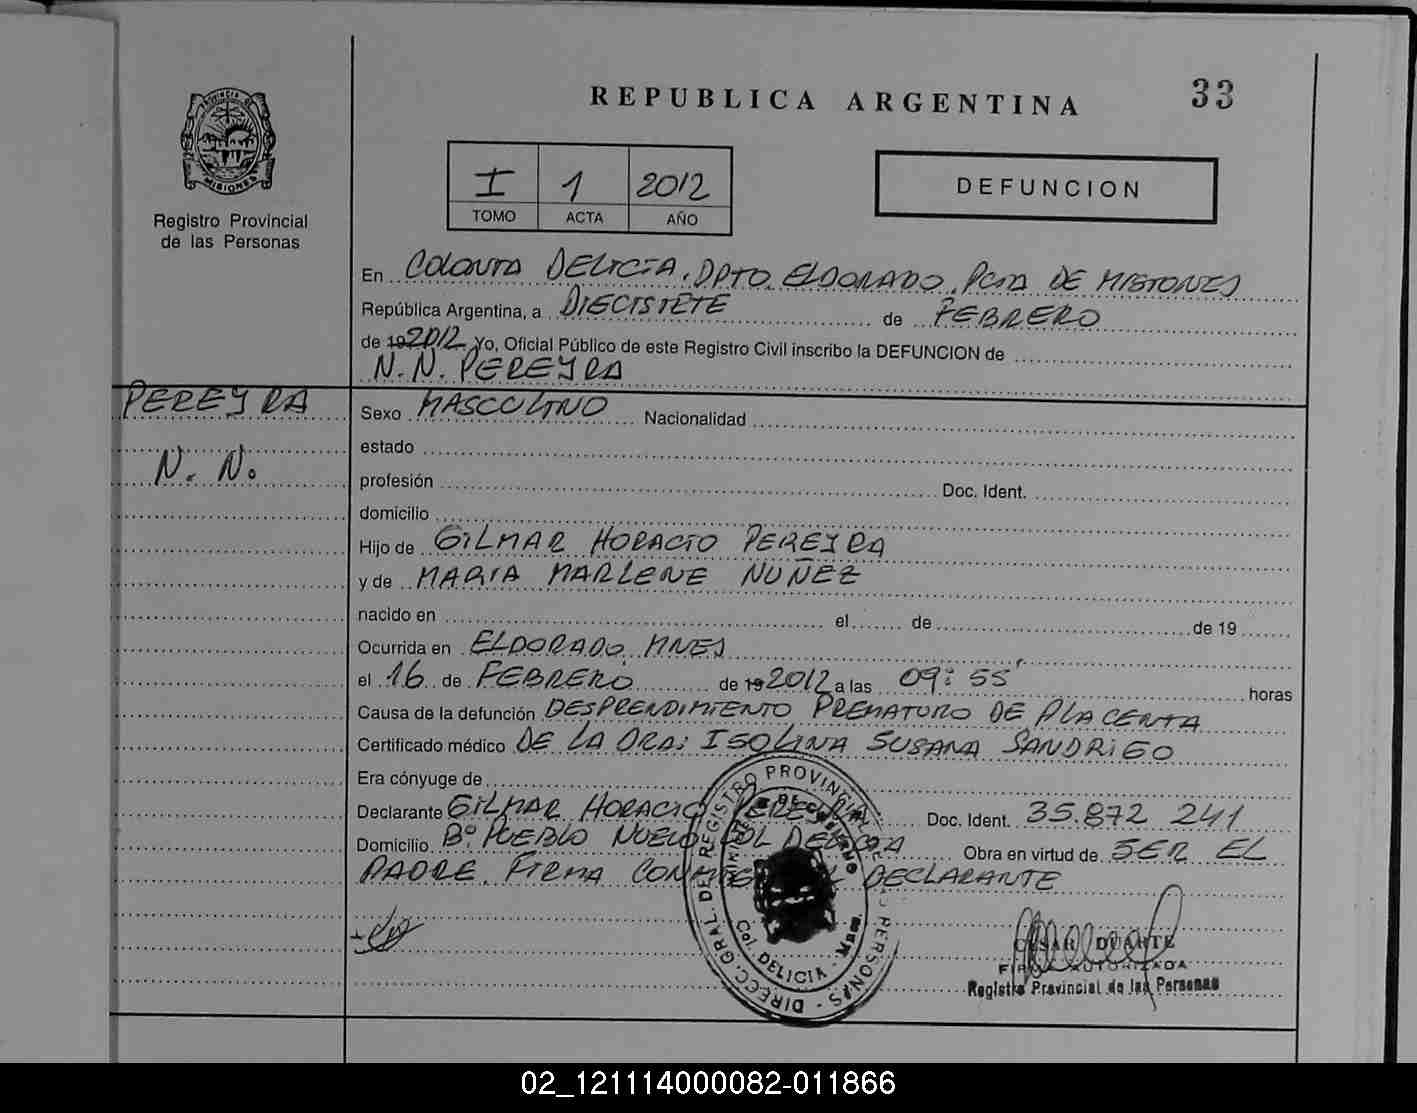 33
REPUBLICA ARGENTINA
PROVINCIA DE
MISIONES
Registro Provincial
de las Personas
I 1 2012
TOMO ACTA AÑO
DEFUNCION
En COLONIA DELICIA. DPTO. ELDORADO. PCIA DE MISIONES
República Argentina, a DIECISIETE de FEBRERO
de 19 2012 Yo, Oficial Público de este Registro Civil inscribo la DEFUNCION de
N. N. PEREYRA
PEREYRA
N. N.
Sexo MASCULINO Nacionalidad
estado
profesión Doc. Ident.
domicilio
Hijo de GILMAR HORACIO PEREYRA
y de MARIA MARLENE NUÑEZ
nacido en el de de 19
Ocurrida en ELDORADO, MNES
el 16 de FEBRERO de 19 2012 a las 09:55' horas
Causa de la defunción DESPRENDIMIENTO PREMATURO DE PLACENTA
Certificado médico DE LA DRA: ISOLINA SUSANA SANDRIGO
Era cónyuge de
Declarante GILMAR HORACIO PEREYRA Doc. Ident. 35.872 241
Domicilio B° PUEBLO NUEVO COL DELICIA Obra en virtud de SER EL
PADRE. FIRMA CONMIGO EL DECLARANTE
DIRECC. GRAL. DEL REGISTRO PROVINCIAL DE LAS PERSONAS
Col. DELICIA - Mnes.
CESAR DUARTE
FIRMA AUTORIZADA
Registro Provincial de las Personas
02_121114000082-011866